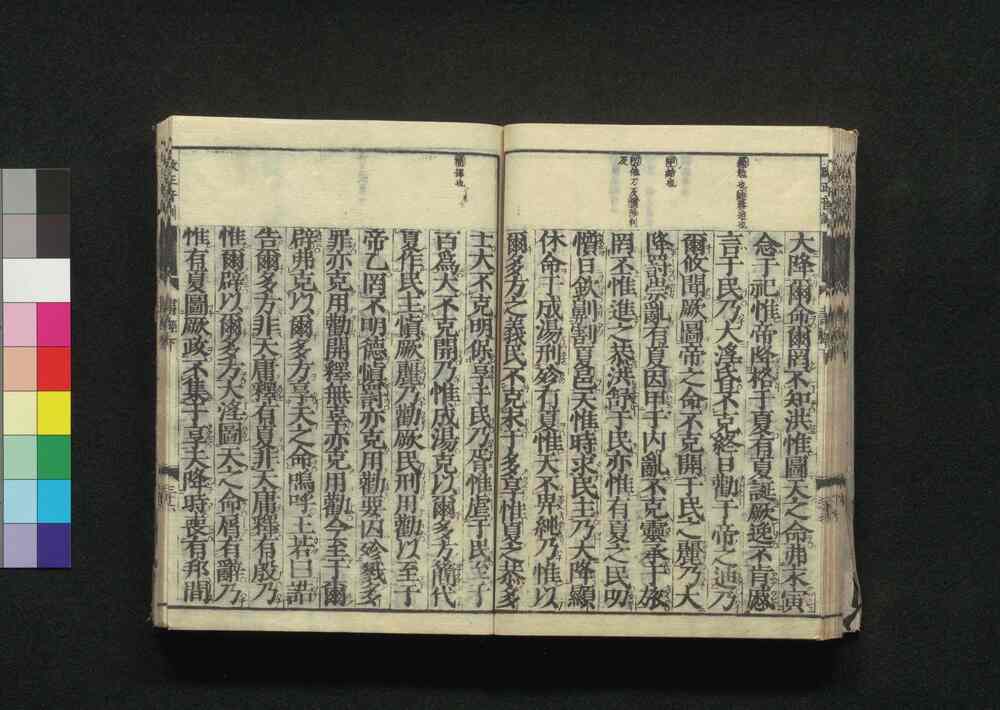 大降爾命爾罔不知洪惟圖天之命弗永寅
念于祀惟帝降格于夏有夏誕厥逸不肯慼
言于民乃大淫昏不克終日勸于帝之迪乃
爾攸聞厥圖帝之命不克開于民之麗乃大
降罰崇亂有夏因甲于内亂不克靈承于旅
罔不惟進之恭洪舒于民亦惟有夏之民叨
懫日欽劓割夏邑天惟時求民主乃大降顯
休命于成湯刑殄有夏惟天不畀純乃惟以
爾多方之義民不克永于多享惟夏之恭多
士大不克明保享于民乃胥惟虐于民至于
百爲大不克開乃惟成湯克以爾多方簡代
夏作民主慎厥麗乃勸厥民刑用勸以至于
帝乙罔不明德慎罰亦克用勸要囚殄戮多
罪亦克用勸開釋無辜亦克用勸今至于爾
辟弗克以爾多方享天之命嗚呼王若曰誥
告爾多方非天庸釋有夏非天庸釋有殷乃
惟爾辟以爾多方大淫圖天之命屑有辭乃
惟有夏圖厥政不集于享天降時喪有邦間